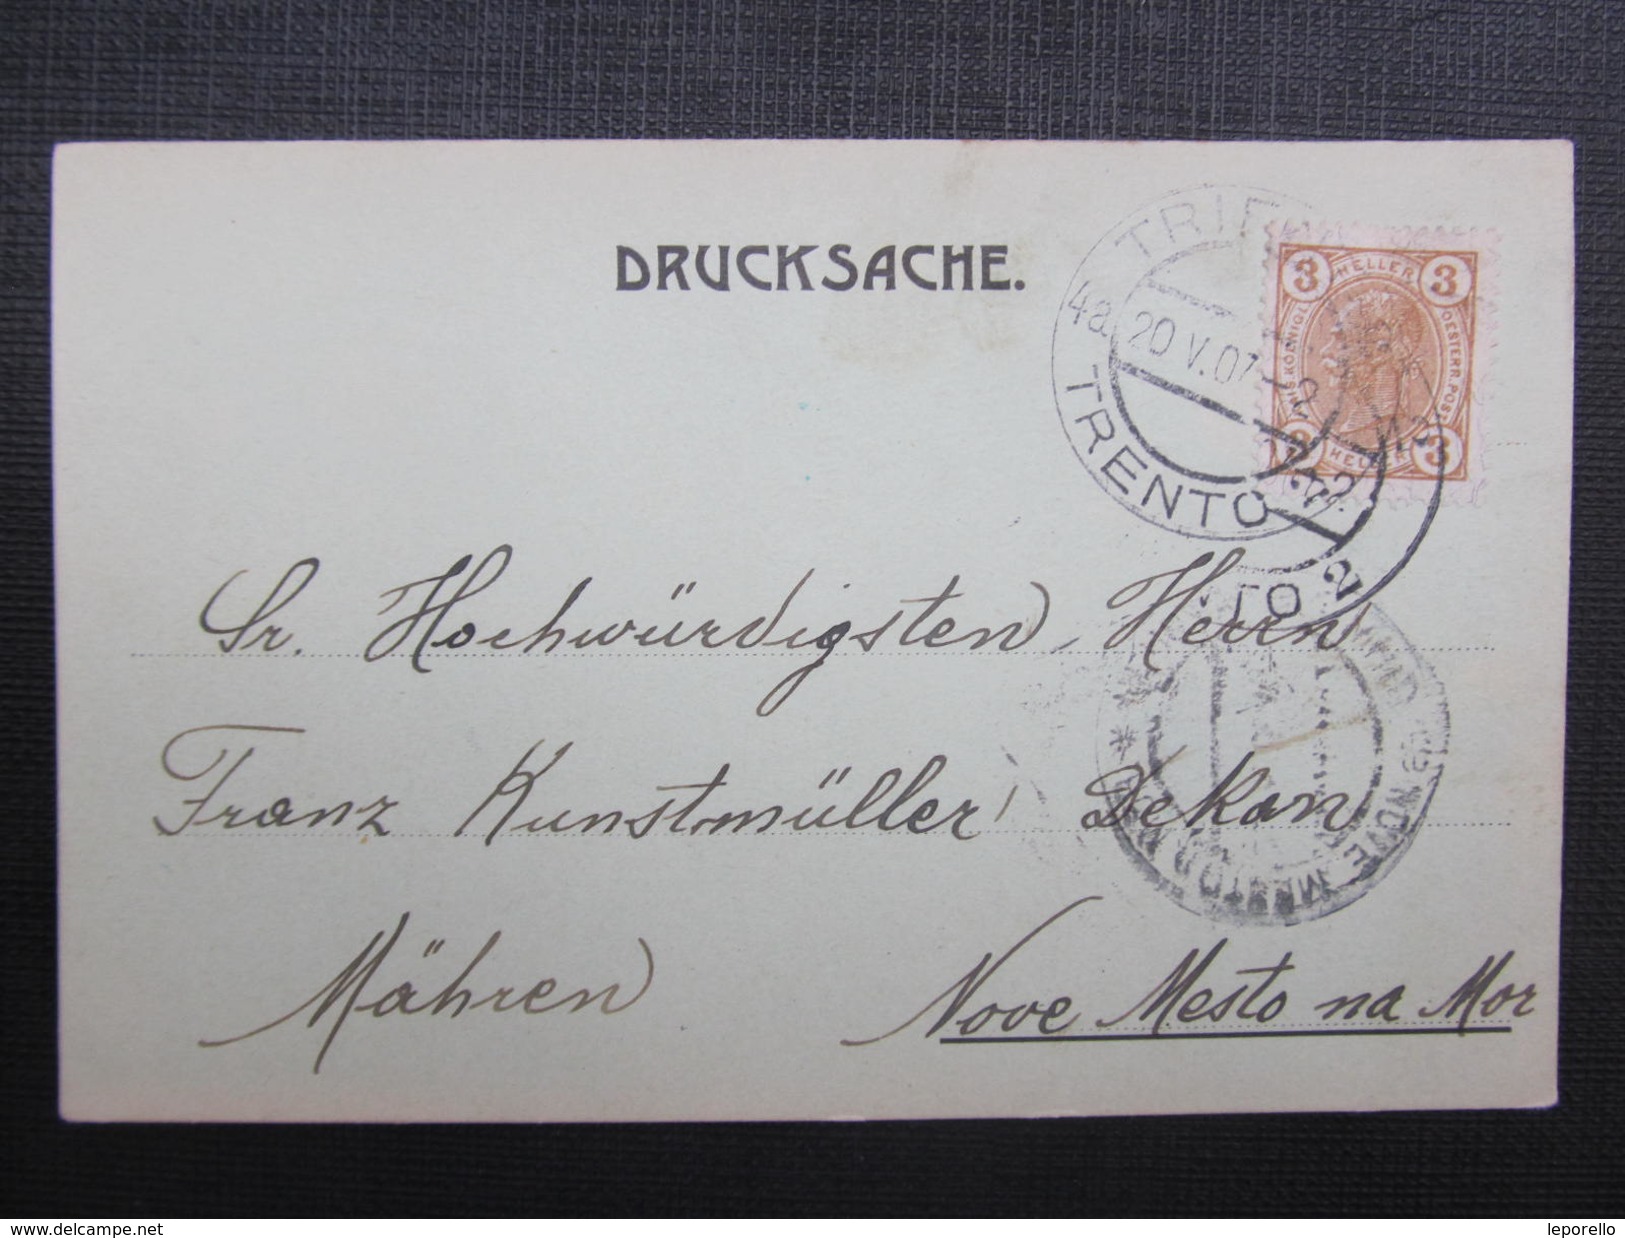 DRUCKSACHE.
TRIE
4a 20 V. 07
TRENTO 2
3 HELLER 3
OESTERR. POST
3 HELLER 3
Sr. Hochwürdigsten Herrn
Franz Kunstmüller, Dekan
Mähren Nove Mesto na Mor
www.delcampe.net
leporello